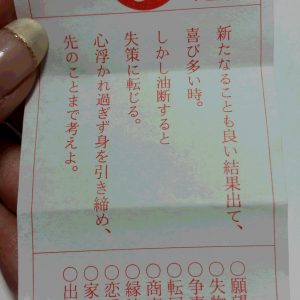 新たなることも良い結果出て、
喜び多い時。
しかし油断すると
失策に転じる。
心浮かれ過ぎず身を引き締め、
先のことまで考えよ。
○願望
○失物
○争事
○転居
○商売
○縁談
○恋
○家
○出